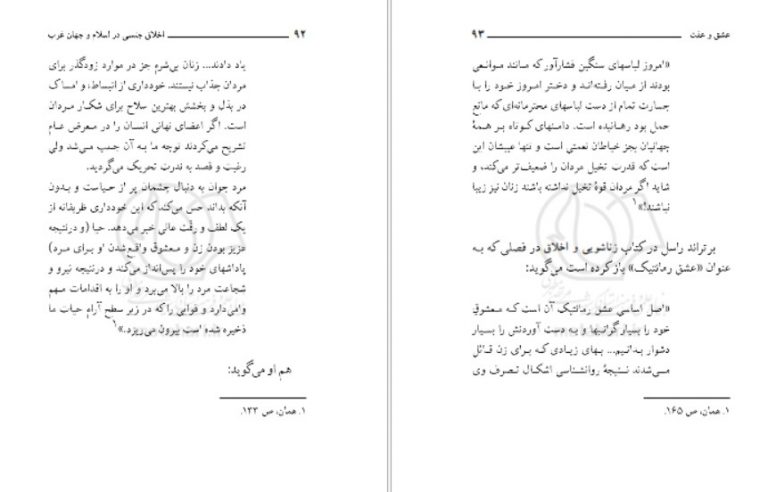 اخلاق جنسی در اسلام و جهان غرب ۹۲
یاد دادند... زنان بی‌شرم جز در موارد زودگذر برای
مردان جذاب نیستند. خودداری از انبساط، و امساک
در بذل و بخشش بهترین سلاح برای شکار مردان
است. اگر اعضای نهانی انسان را در معرض عام
تشریح می‌کردند توجه ما به آن جلب می‌شد ولی
رغبت و قصد به ندرت تحریک می‌گردید.
مرد جوان به دنبال چشمان پر از حیاست و بدون
آنکه بداند حس می‌کند که این خودداری ظریفانه از
یک لطف و رقّت عالی خبر می‌دهد. حیا (و درنتیجه
عزیز بودن زن و معشوق واقع شدن او برای مرد)
پاداشهای خود را پس‌انداز می‌کند و درنتیجه نیرو و
شجاعت مرد را بالا می‌برد و او را به اقدامات مهم
وامی‌دارد و قوایی را که در زیر سطح آرام حیات ما
ذخیره شده است بیرون می‌ریزد.»۱
هم او می‌گوید:
۱. همان، ص ۱۳۳.
عشق و عفت ۹۳
«امروز لباسهای سنگین فشارآور که مانند موانعی
بودند از میان رفته‌اند و دختر امروز خود را با
جسارت تمام از دست لباسهای محترمانه‌ای که مانع
حمل بود رهانیده است. دامنهای کوتاه بر همهٔ
جهانیان بجز خیاطان نعمتی است و تنها عیبشان این
است که قدرت تخیل مردان را ضعیف‌تر می‌کند، و
شاید اگر مردان قوهٔ تخیل نداشته باشند زنان نیز زیبا
نباشند!»۱
برتراند راسل در کتاب زناشویی و اخلاق در فصلی که به
عنوان «عشق رمانتیک» باز کرده است می‌گوید:
«اصل اساسی عشق رمانتیک آن است که معشوق
خود را بسیار گرانبها و به دست آوردنش را بسیار
دشوار بدانیم... بهای زیادی که برای زن قائل
می‌شدند نتیجهٔ روانشناسی اشکال تصرف وی
۱. همان، ص ۱۶۵.